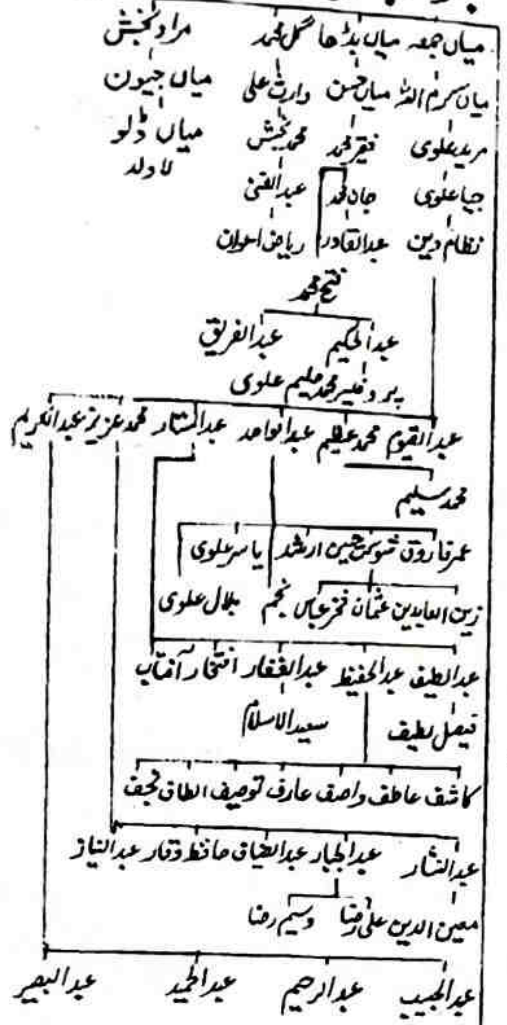 میاں جمعہ میاں بڈھا گل محمد مراد بخش
میاں کرم اللہ میاں حسن وارث علی میاں جیون
مرید علوی فقیر محمد محمد بخش میاں ڈلو
لاولد
جیا علوی جان محمد عبدالغنی
نظام دین عبدالقادر ریاض اعوان
فتح محمد
عبدالحکیم عبدالفریق
پروفیسر محمد علیم علوی
عبدالقیوم محمد عظیم عبدالواحد عبدالستار محمد عزیز عبدالکریم
محمد سلیم
عمر فاروق حسین ارشد یاسر علوی
زین العابدین عثمان فخر عباس نجم بلال علوی
عبدالطیف عبدالحفیظ عبدالغفار افتخار آفتاب
فیصل لطیف سعیدالاسلام
کاشف عاطف واصف عارف توصیف الطاف نجف
عبدالنثار عبدالجبار عبدالفیاق حافظ وقار عبدالنیاز
معین الدین علی رضا وسیم رضا
عبدالمجیب عبدالرحیم عبدالحمید عبدالبصیر